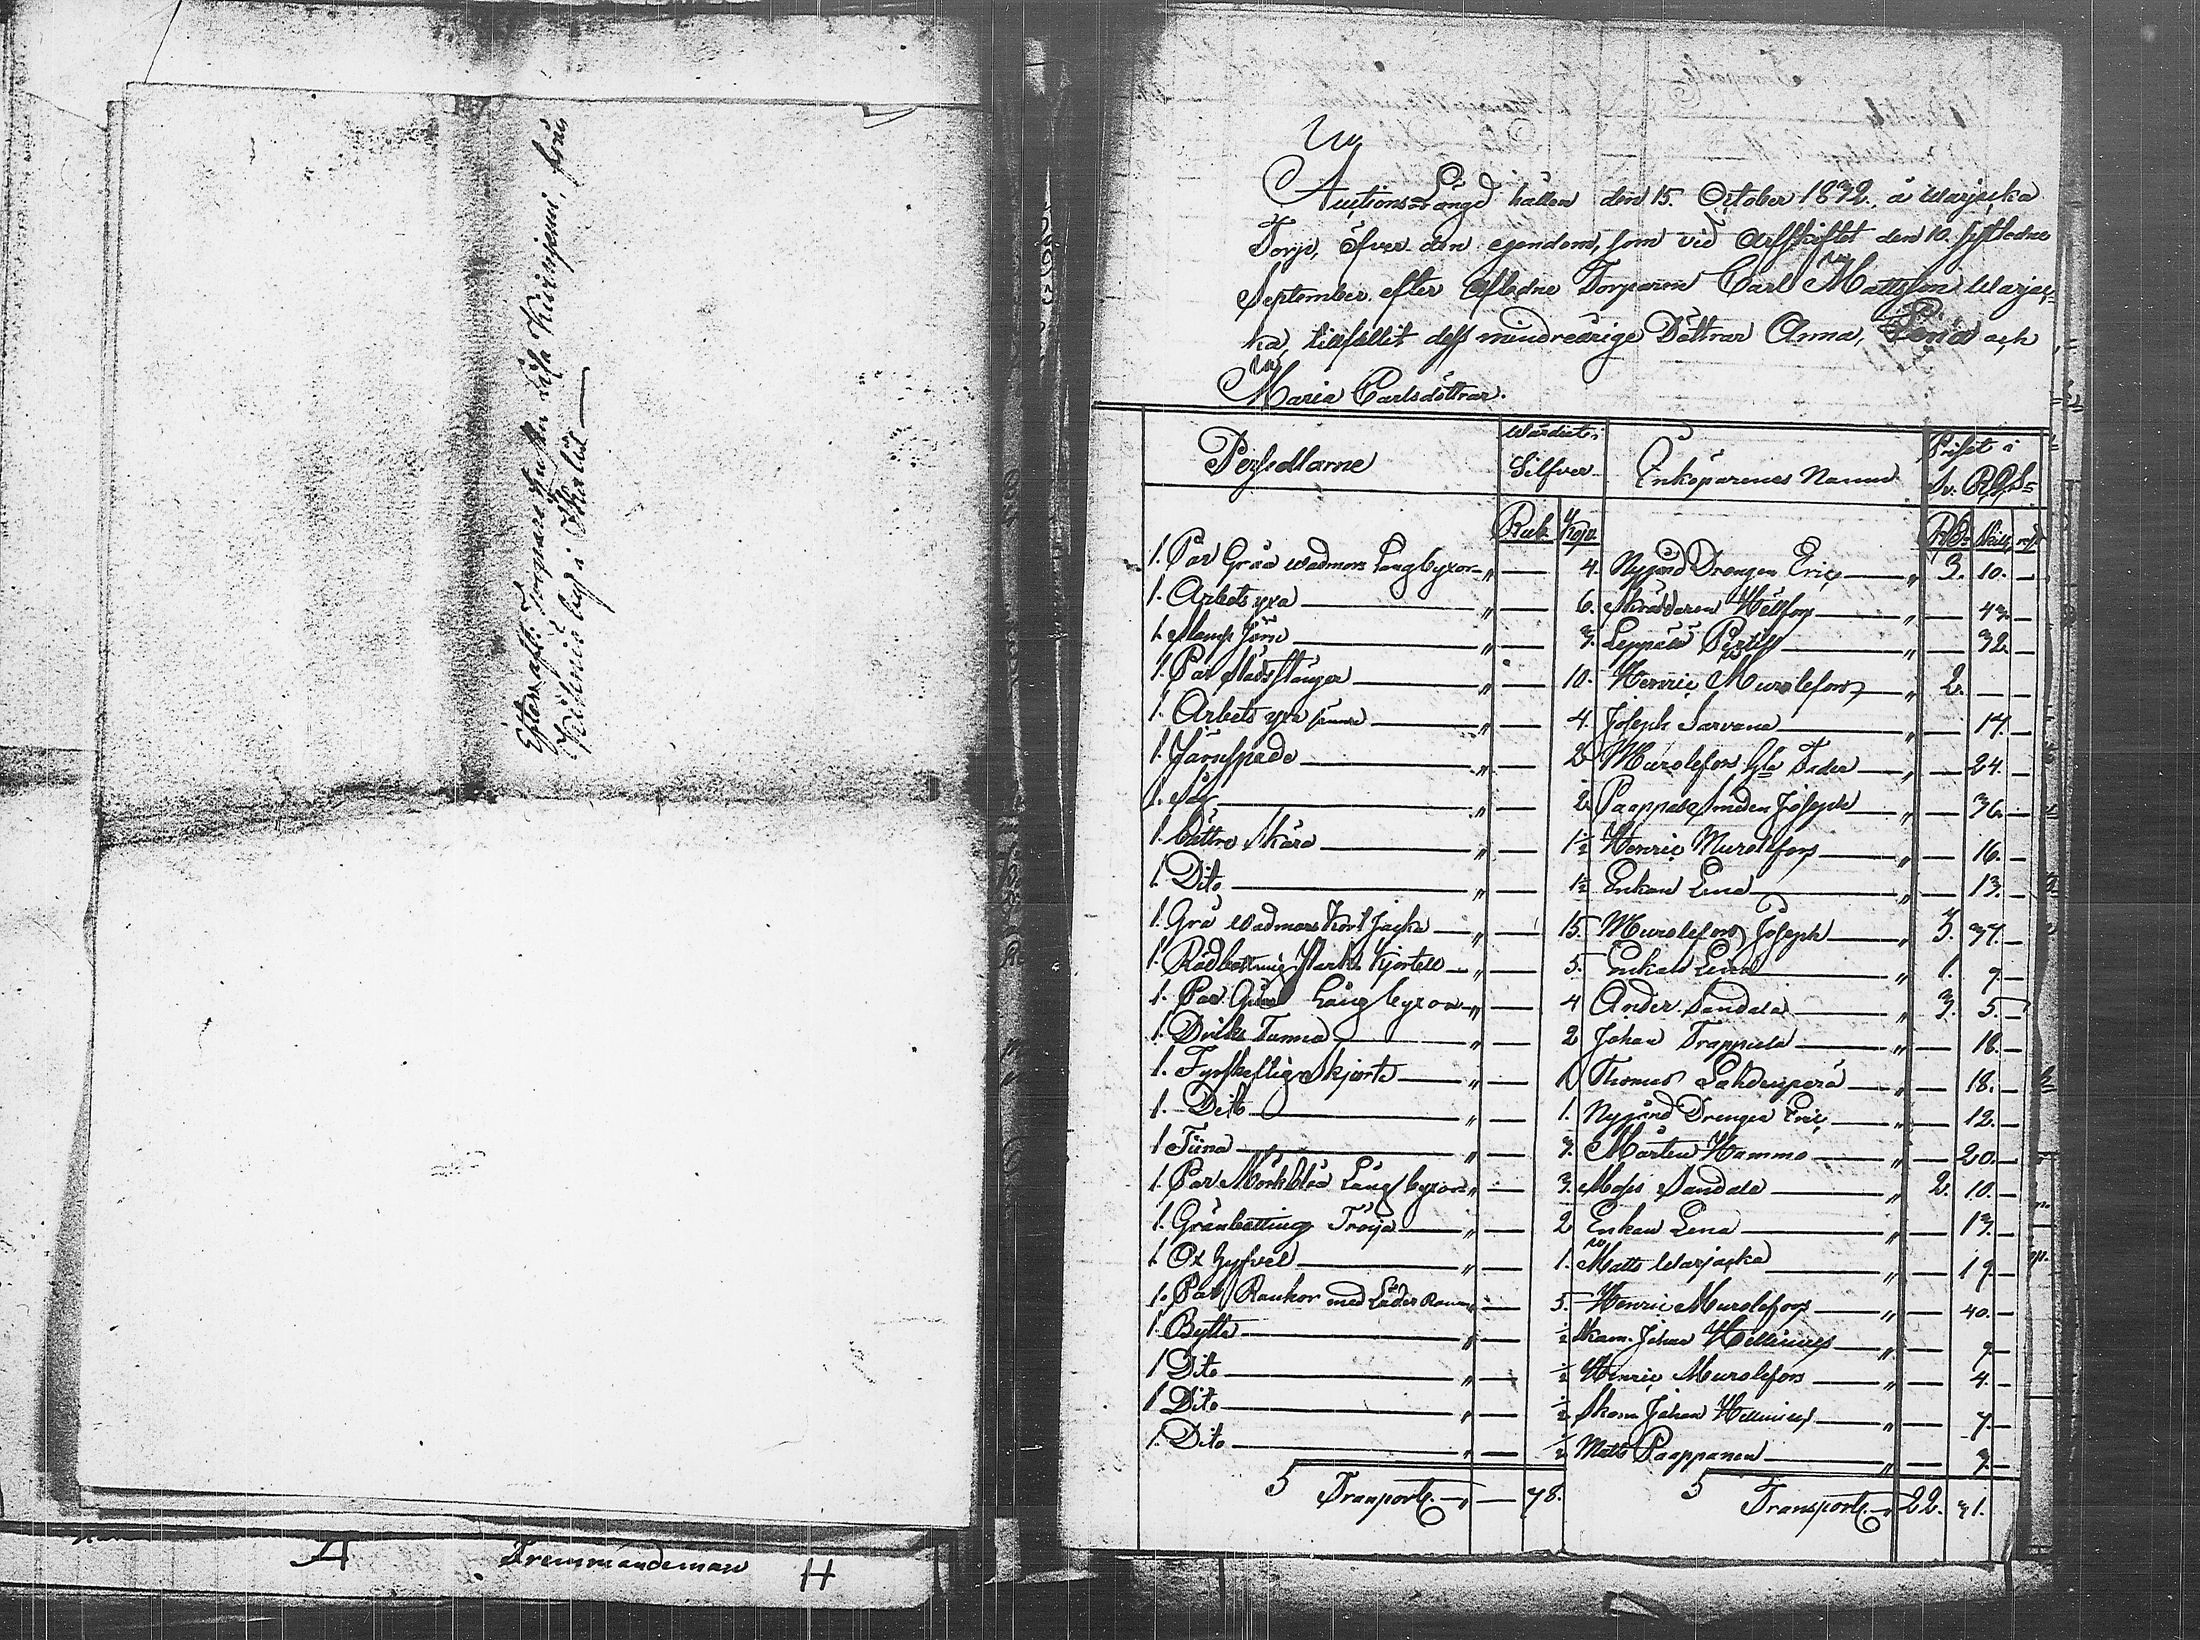 Efter afl: Torpare Enkan Lisa Kirnjemi, från
Kitinoja by i Skalit
Fremmandeman
Auctions-Längd hållen den 15. October 1832. å Warjacka
Torp, öfver den egendom, som vid Arfskiftet den 10. sistledne
September efter Afledne Torparen Carl Mattsson Warjac-
ka, tillfallit dess minderårige Döttrar Anna, Lena och
Maria Carlsdöttrar.
Persedlarne Wärdert i Silfver Inköparenes Namn Priset i Sv. RGS
Rub. Kop. RD Skill. rst
1. Par Gråa wadmars Långbyxor " — 4. Nygård Drengen Eric " 3. 10. —
1. Arbets yxa " — 6. Skräddaren Hellfors " — 43. —
1. Stamp Järn " — 3. Leppälä Pertill " — 32. —
1. Par Släd Stänger " — 10. Henric Murolefors " 2. — —
1. Arbets yxa sämre " — 4. Joseph Sarvana " 14. —
1. Järnspade " — 2 Murolefors Gla Fader " — 24. —
1. Såg " — 2. Paappala Smeden Joseph " — 36. —
1. bättre Skära " — 1½ Henric Murolefors " — 16. —
1. Dito " — 1½ Enkan Lena " — 13. —
1. Grå Wadmars Kort Jacka " — 15. Murolefors Joseph " 3. 37. —
1. Rödbottnig Kjortell " — 5. Enkan Lena " 1. 9. —
1. Par Gråa Långbyxor " — 4 Ander Sandala " 3. 5. —
1. Dricks Tunna " — 2 Johan Trappila " — 18. —
1. Fyrskeftig Skjorta " — 1 Thomas Lahdenperä " — 18. —
1. Dito " — 1. Nygård Drengen Eric " — 12. —
1 Tiina " — 3. Mårten Hammo " — 20. —
1. Par Mörkblåa Långbyxor " — 3. Moses Sandala " 2. 10. —
1. Gränbottnig Tröija " — 2 Enkan Lena " — 13. —
1. Ox Hyfvel " — 1. Matts Warjacka " — 19. —
1. Par Rankor med Läder " — 5. Henric Murolefors " — 40. —
1. Bytta " — ½ Skom. Johan Hellenius " — 9 —
1 Dito " — ½ Henric Murolefors " — 4. —
1 Dito " — ½ Skom Johan Hellenius " — 7. —
1. Dito " — ½ Matts Paappanen " — 9. —
Transport. " — 78. Transport. " 22. 31.